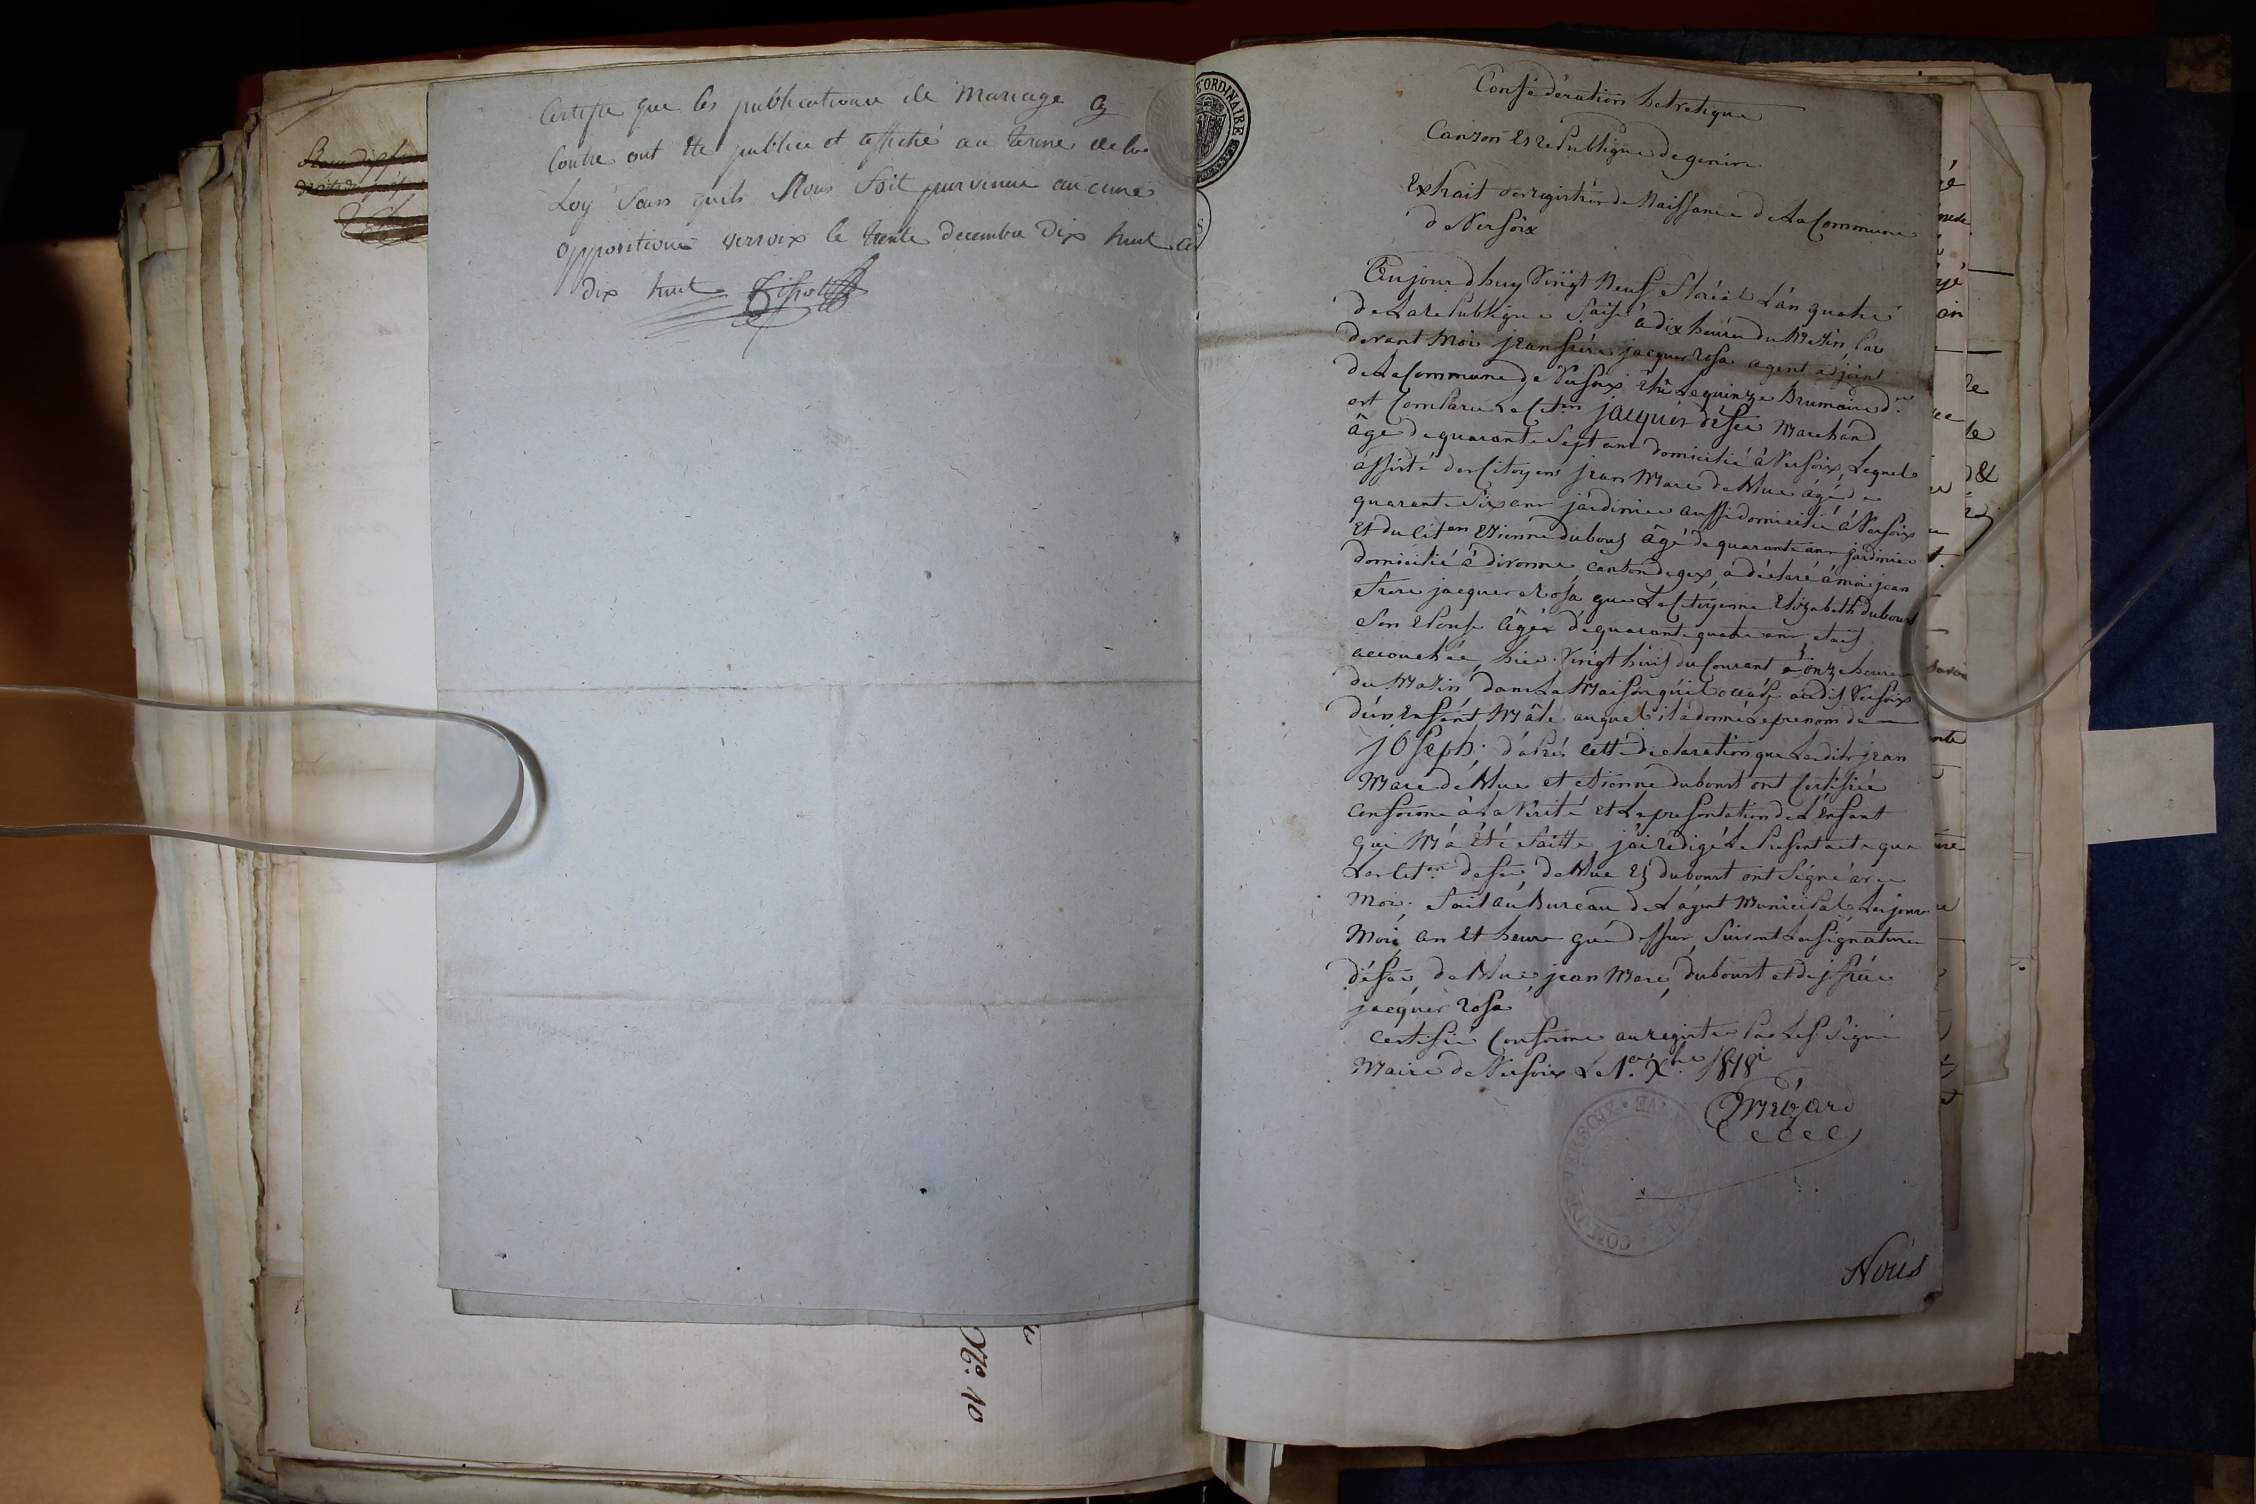 Certifie que les publications de Mariage cy
Contre ont été publiée et affiché au terme de la
Loy Sans qu'ils Nous Soit parvenue aucunes
opposition versoix le trente decembre dix huit cent
dix huit
No. 10
ORDINAIRE
Confédération helvetique
Canton Et République de genève
Extrait des registres de Naissance de La Commune
de Versoix
Aujourdhuy Vingt Neuf floréal L'an quatre
de La republique fr. aise à dix heures du Matin, Par
devant Moi jean frère jacques rosa agent adjoint
de La Commune de Versoix Elû Le quinze Brumaire d.er
est Comparu Le Cit.en jacques désée Marchand
âgé de quarante sept ans domicilié à Versoix, Lequel
assisté des Citoyens jean Marc deHue âgé de
quarante Six ans jardinier aussi domicilié à Versoix
et du Cit.en Etienne dubourt âgé de quarante ans jardinier
domicilié à divonne, canton de gex, a déclaré à moi jean
frere jacques Rosa que La Citoyenne Elizabeth dubourt
Son Epouse âgée de quarante quatre ans, etait
accouchée hier Vingt huit du Courant à onze heures
du Matin dans La Maison qu'il occupe audit Versoix
d'un Enfant Mâle auquel il a donné Le prenom de
joseph; d'après cette déclaration que Lesdits jean
Marc deHue et etienne dubourt ont Certifiée
conforme à La Vérité et La presentation de L'Enfant
qui M'a été faitte, j'ai rédigé Le Présent acte que
Les Cit.en desée deHue Et dubourt ont Signé avec
Moi. fait au Bureau de L'agent Municipal, Les jour
Mois an et heure que dessus, Suivent Les Signatures
désée, deHue, jean Marc, dubourt et de j frère
jacques rosa
Certifié Conforme au registre Par Le S.Signé
Maire de Versoix Le 1.er X.bre 1818
VERSOIX
Nous